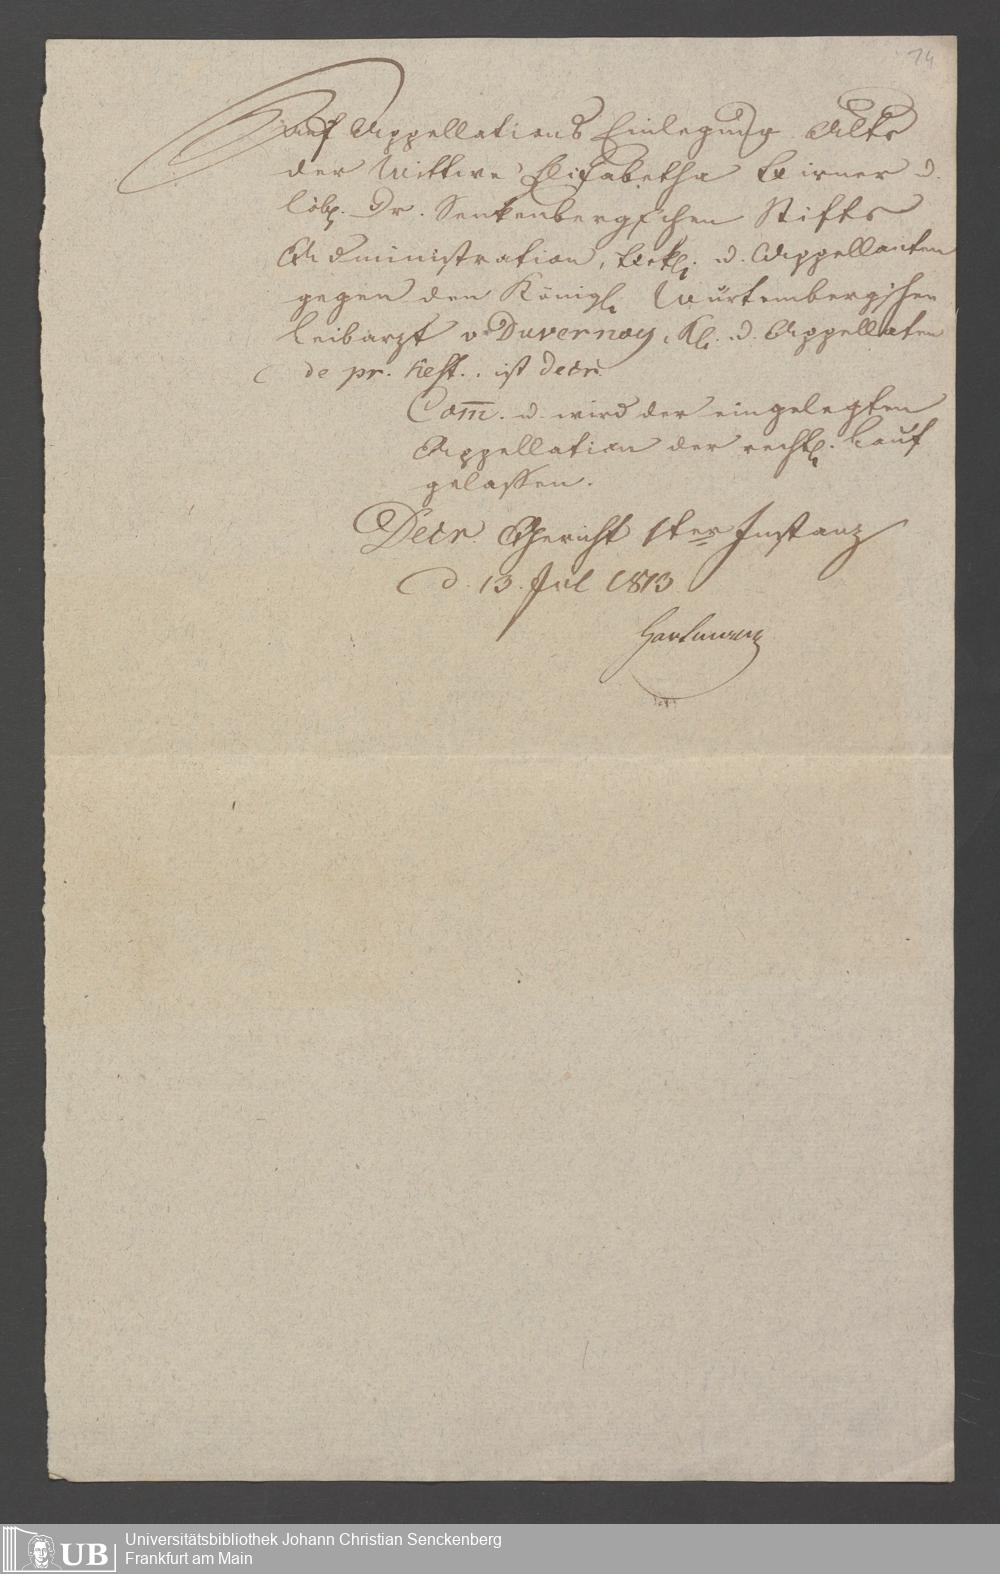 74
Auf Appellations Einlegung Alts
der Wittwe Elisabetha Birner u.
löbl. Dr. Senkenbergschen Stifts
Administration, Bekl. u. Appellanten
gegen den Königl. Würtembergschen
Leibarzt v. Duvernoy, Kl. u. Appellaten
de pr. hest. ist decr.
Com̅. u. wird der eingelegten
Appellation der rechtl. Lauf
gelassen.
Decr. Gericht 1ter Instanz
d. 13. Jul 1813
Hartmann
UB Universitätsbibliothek Johann Christian Senckenberg
Frankfurt am Main